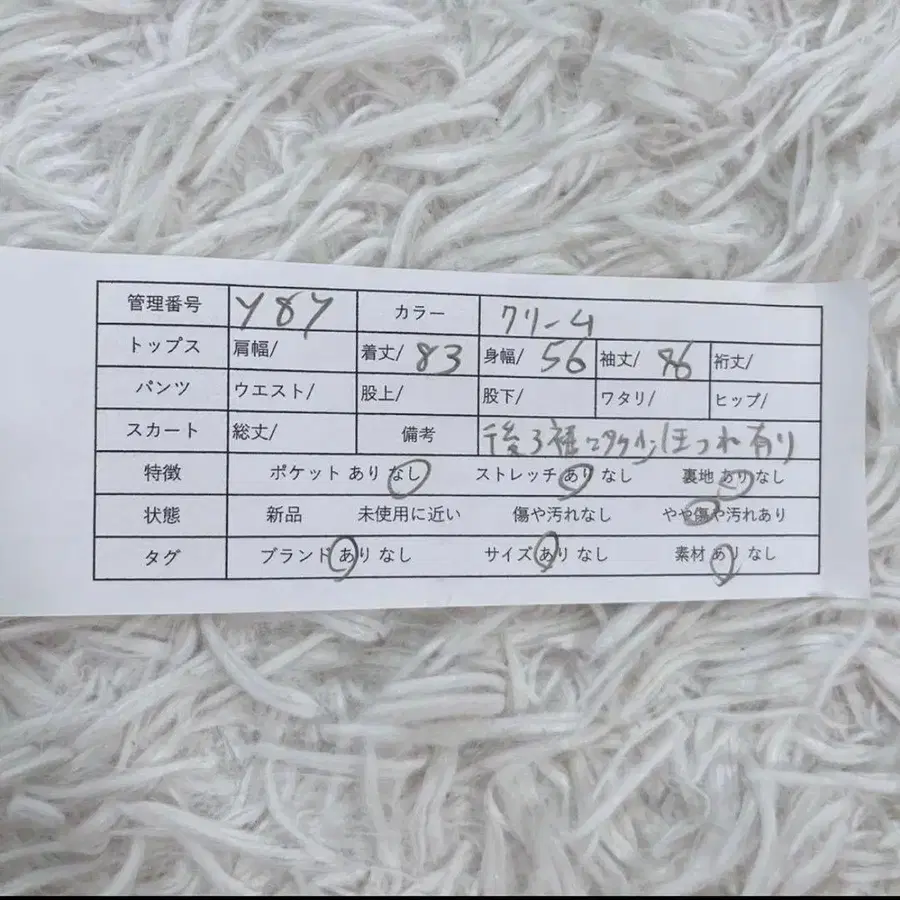 管理番号 Y87 カラー クリーム
トップス 肩幅/ 着丈/ 83 身幅/ 56 袖丈/ 86 裄丈/
パンツ ウエスト/ 股上/ 股下/ ワタリ/ ヒップ/
スカート 総丈/ 備考 後ろ裾 ほつれ有り
特徴 ポケット あり なし ストレッチ あり なし 裏地 あり なし
状態 新品 未使用に近い 傷や汚れなし やや傷や汚れあり
タグ ブランド あり なし サイズ あり なし 素材 あり なし